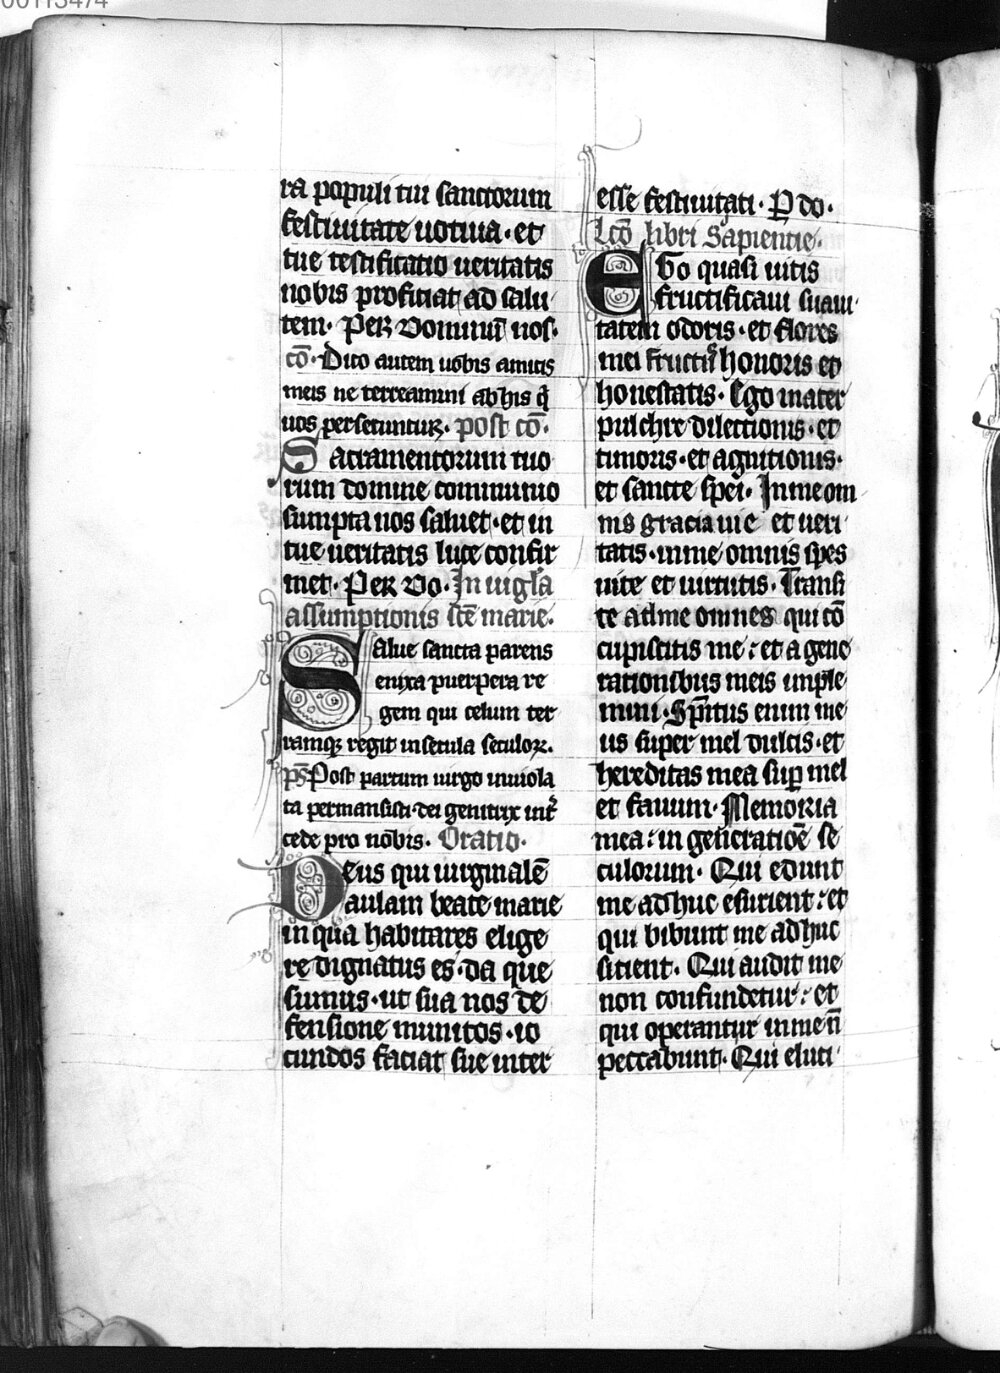 00113474
ra populi tui sanctorum
festiuitate uotiua · et
tue testificatio ueritatis
nobis proficiat ad salu
tem · Per dominū nos ·
cō · Dico autem uobis amicis
meis ne terreamini ab his q̄
uos persecuntur · post cō ·
Sacramentorum tuo
rum domine communio
sumpta nos saluet · et in
tue ueritatis luce confir
met · Per do · In uigl̄a
assumptionis scē marie ·
Salue sancta parens
enixa puerpera re
gem qui celum ter
ramqꝫ regit in secula seculoꝝ ·
p̄s Post partum uirgo inuiola
ta permansisti · dei genitrix int̄
cede pro nobis · Oratio ·
Deus qui uirginalē
aulam beate marie
in qua habitares elige
re dignatus es · da que
sumus · ut sua nos de
fensione munitos · io
cundos faciat sue inter
esse festiuitati · P do ·
Lcō libri sapientie ·
Ego quasi uitis
fructificaui suaui
tatem odoris · et flores
mei fructus honoris et
honestatis · Ego mater
pulchre dilectionis · et
timoris · et agnitionis ·
et sancte spei · In me om
nis gracia uie et ueri
tatis · in me omnis spes
uite et uirtutis · Transi
te ad me omnes qui cō
cupiscitis me : et a gene
rationibus meis imple
mini · Sp̄itus enim me
us super mel dulcis · et
hereditas mea suꝑ mel
et fauum · Memoria
mea : in generatiōe se
culorum · Qui edunt
me adhuc esurient : et
qui bibunt me adhuc
sitient · Qui audit me
non confundetur : et
qui operantur in me n̄
peccabunt · Qui eluci